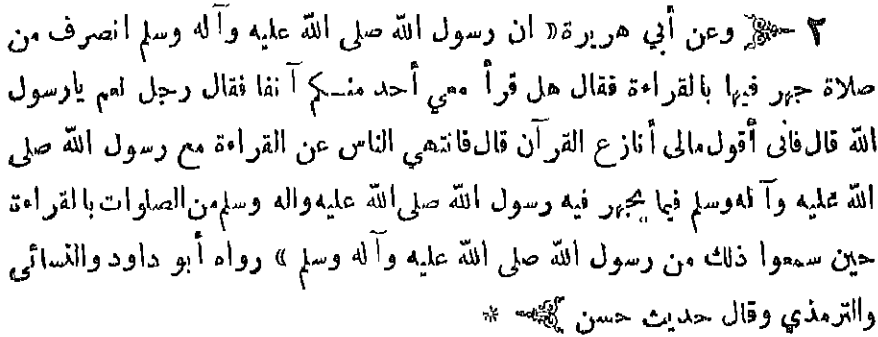 ٢ وعن أبي هريرة« ان رسول الله صلى الله عليه وآله وسلم انصرف من
صلاة جهر فيها بالقراءة فقال هل قرأ معي أحد منكم آنفا فقال رجل نعم يارسول
الله قال فانى أقول مالى أنازع القرآن قال فانتهي الناس عن القراءة مع رسول الله صلى
الله عليه وآله وسلم فيما يجهر فيه رسول الله صلى الله عليه واله وسلم من الصلوات بالقراءة
حين سمعوا ذلك من رسول الله صلى الله عليه وآله وسلم » رواه أبو داود والنسائى
والترمذي وقال حديث حسن *